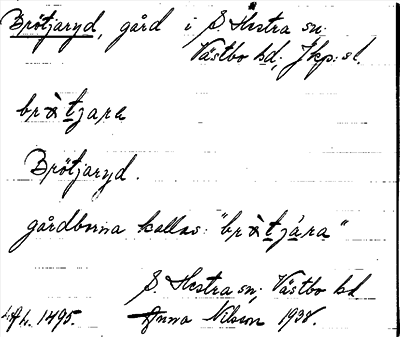 Brötjaryd, gård i S. Hestra sn.
Västbo hd; Jkp: sl.
brö̀tjara
Brötjaryd.
gårdborna kallas: "brö̀tjára"
S. Hestra sn; Västbo hd
1495. Anna Nilson 1938.